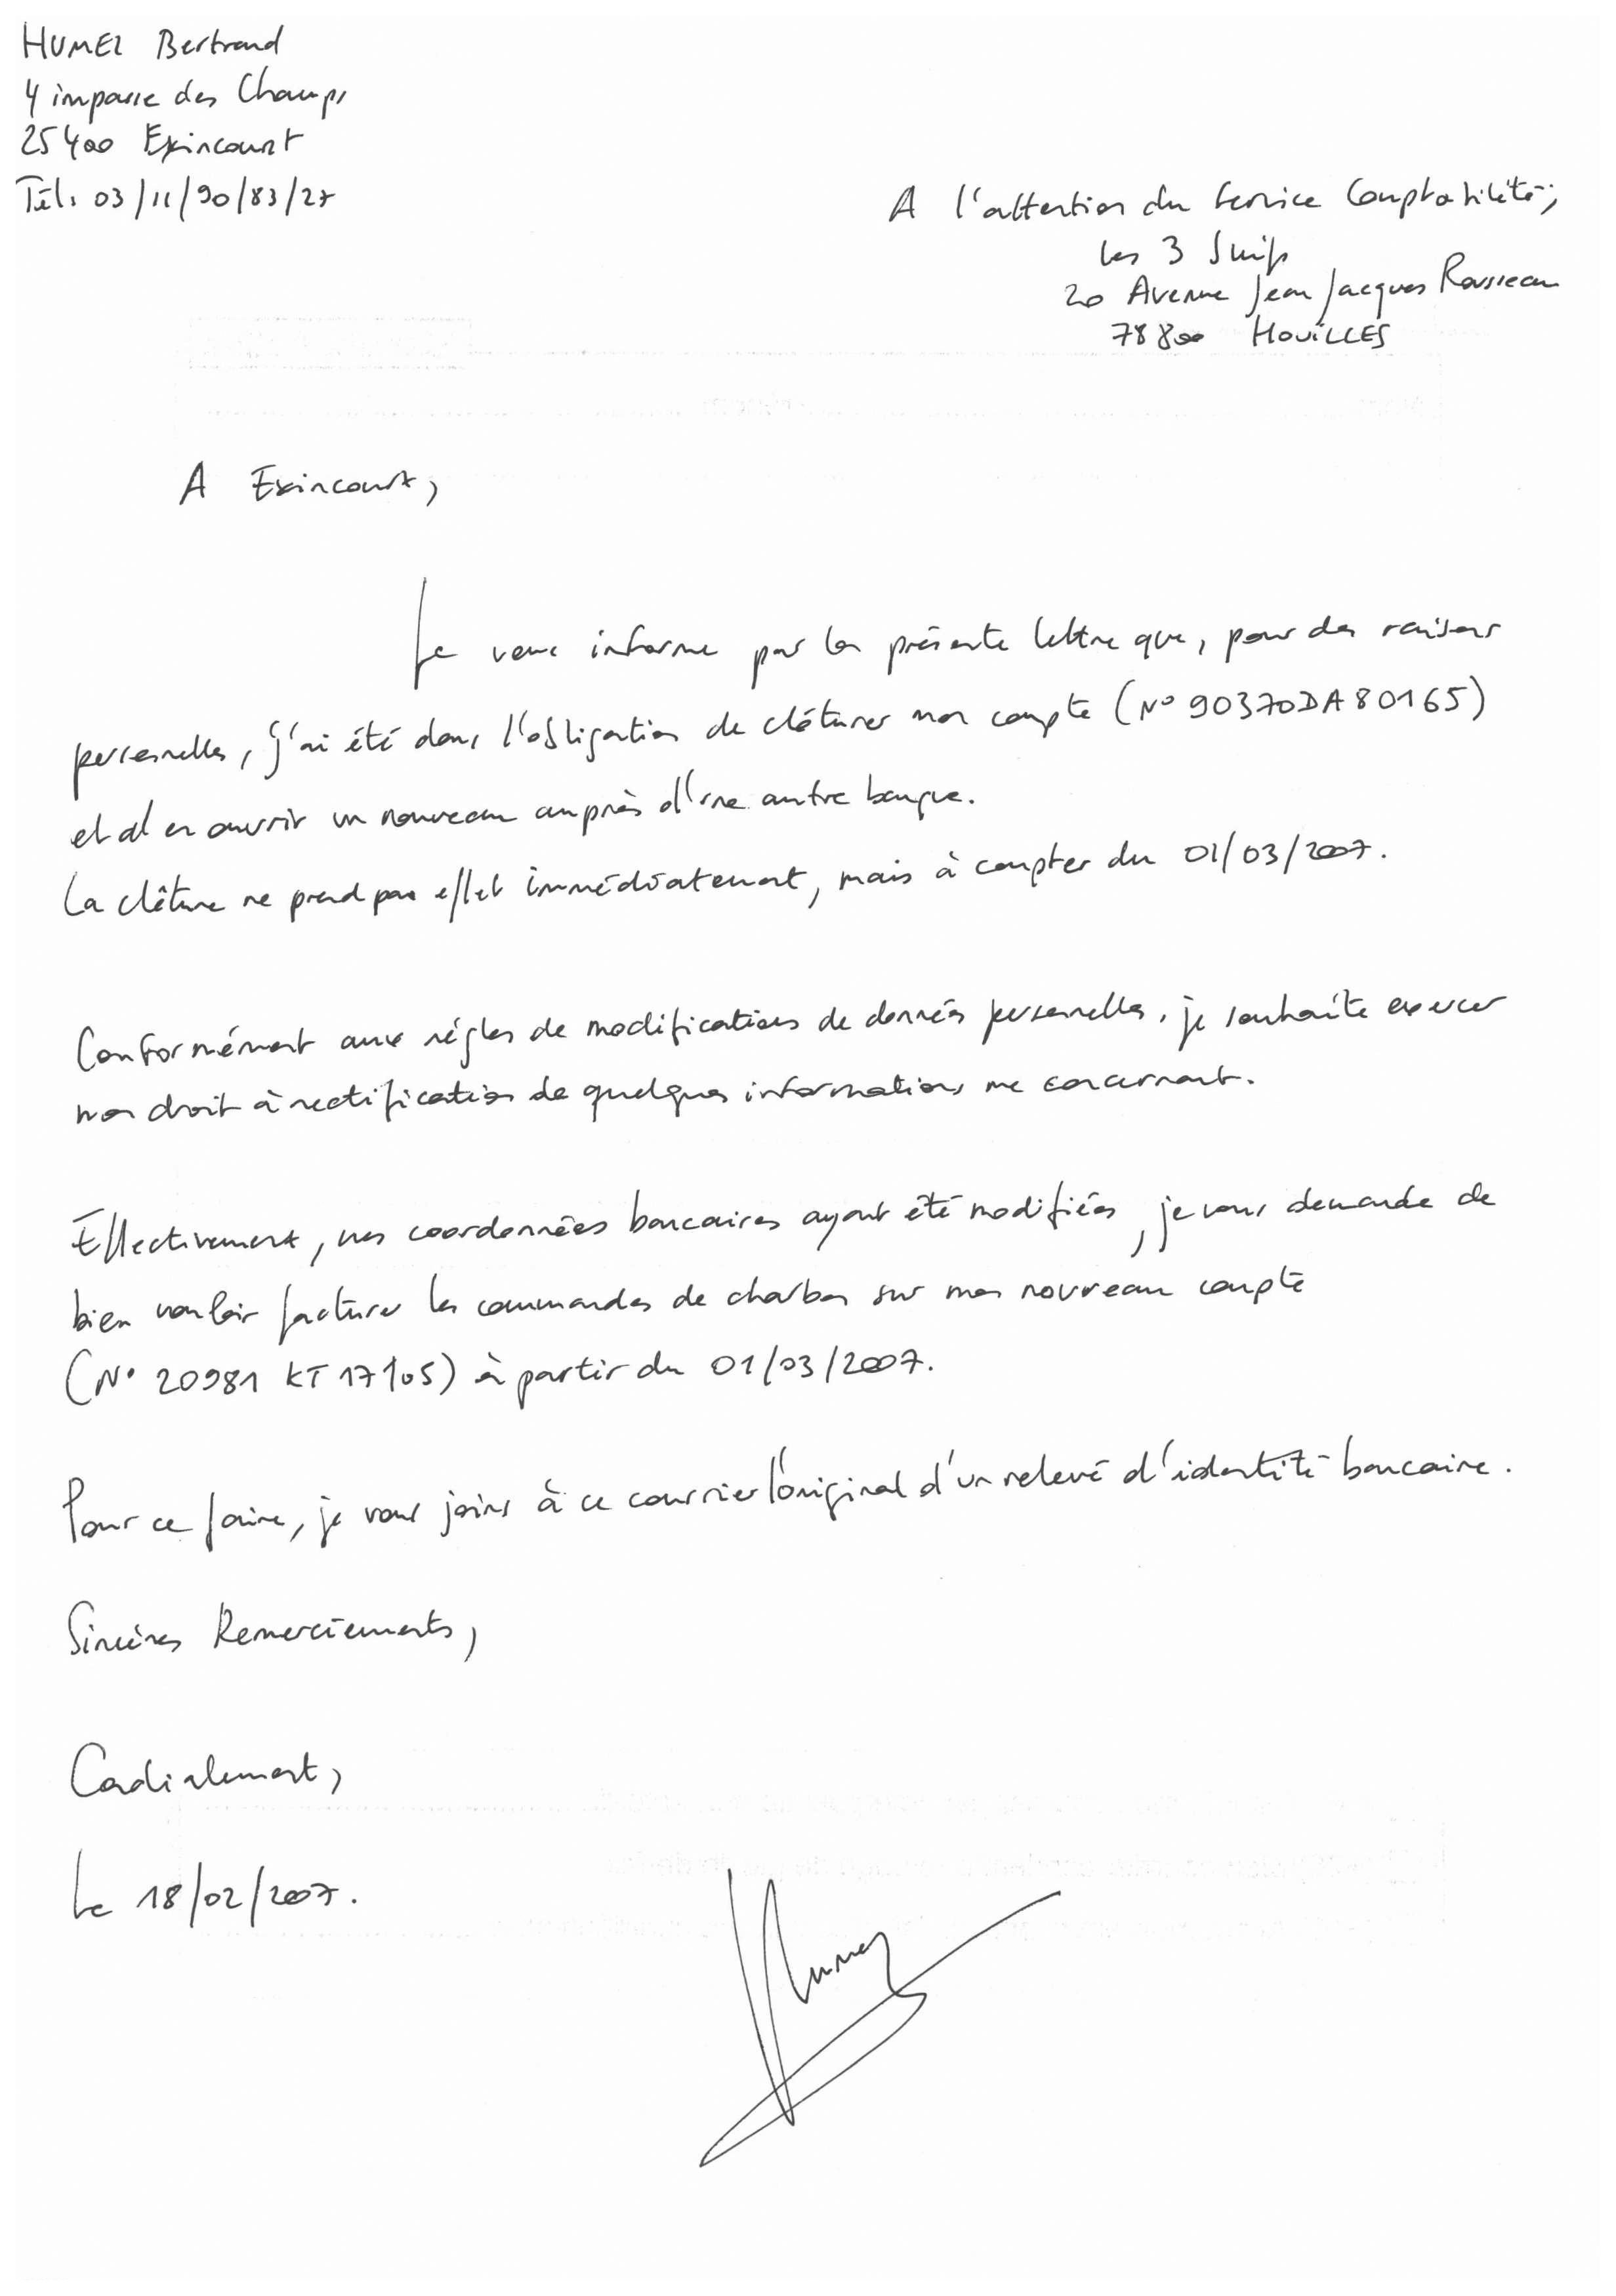 HUMEZ Bertrand
4 impasse des Champs
25400 Exincourt
Tél: 03/11/90/83/27
A l'attention du Service Comptabilité;
Les 3 Suisses
20 Avenue Jean Jacques Rousseau
78800 HOUILLES
A Exincourt,
Je vous informe par la présente lettre que, pour des raisons
personnelles, j'ai été dans l'obligation de clôturer mon compte (N° 90370DA80165)
et d'en ouvrir un nouveau auprès d'une autre banque.
La clôture ne prend pas effet immédiatement, mais à compter du 01/03/2007.
Conformément aux règles de modifications de données personnelles, je souhaite exercer
mon droit à rectification de quelques informations me concernant.
Effectivement, mes coordonnées bancaires ayant été modifiées, je vous demande de
bien vouloir facturer les commandes de charbon sur mon nouveau compte
(N° 20981 KT 17105) à partir du 01/03/2007.
Pour ce faire, je vous joins à ce courrier l'original d'un relevé d'identité bancaire.
Sincères Remerciements,
Cordialement,
Le 18/02/2007.
Humez